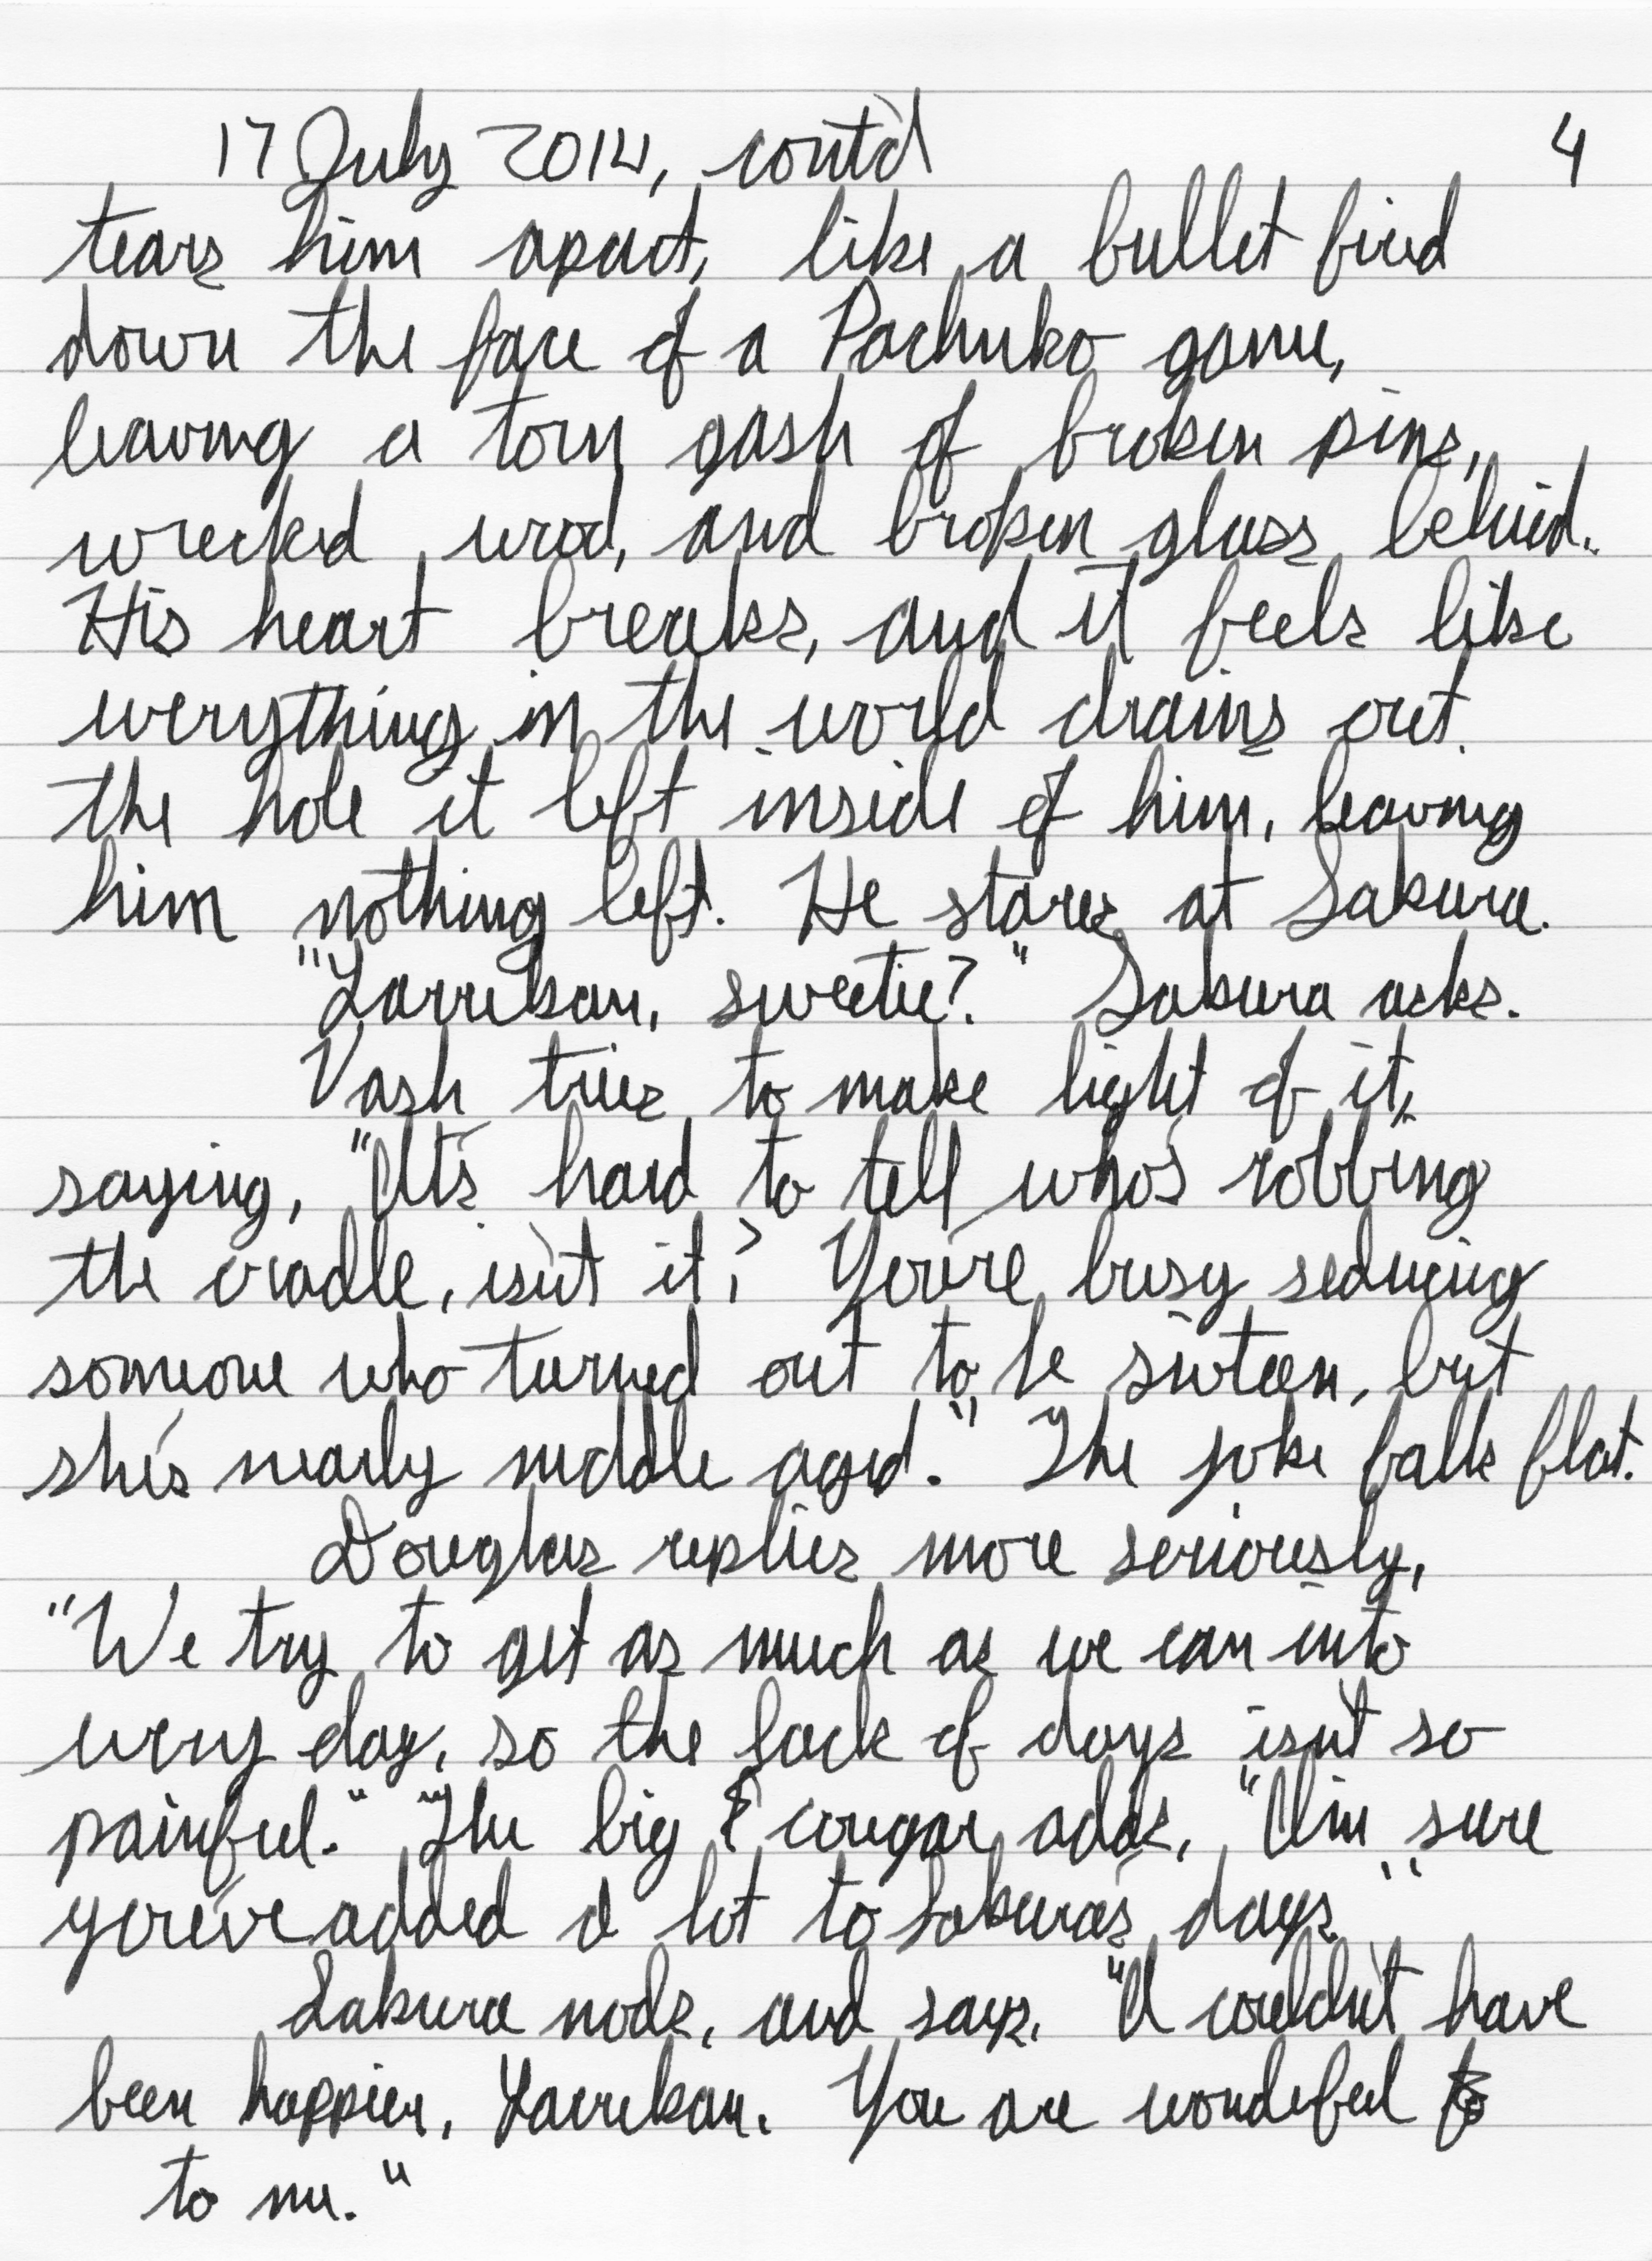 17 July 2014, cont'd 4
tears him apart, like a bullet fired
down the face of a Pachuko game,
leaving a torn gash of broken pins,
wrecked wood, and broken glass behind.
His heart breaks, and it feels like
everything in the world drains out
the hole it left inside of him, leaving
him nothing left. He stares at Sakura.
"Larrikan, sweetie?" Sakura asks.
Vash tries to make light of it,
saying, "It's hard to tell who's robbing
the cradle, isn't it? You're busy seducing
someone who turned out to be sixteen, but
she's nearly middle aged." The joke falls flat.
Douglas replies more seriously,
"We try to get as much as we can into
every day, so the lack of days isn't so
painful." The big cougar adds, "I'm sure
you've added a lot to Sakura's days."
Sakura nods, and says, "I couldn't have
been happier, Larrikan. You are wonderful to
to me."